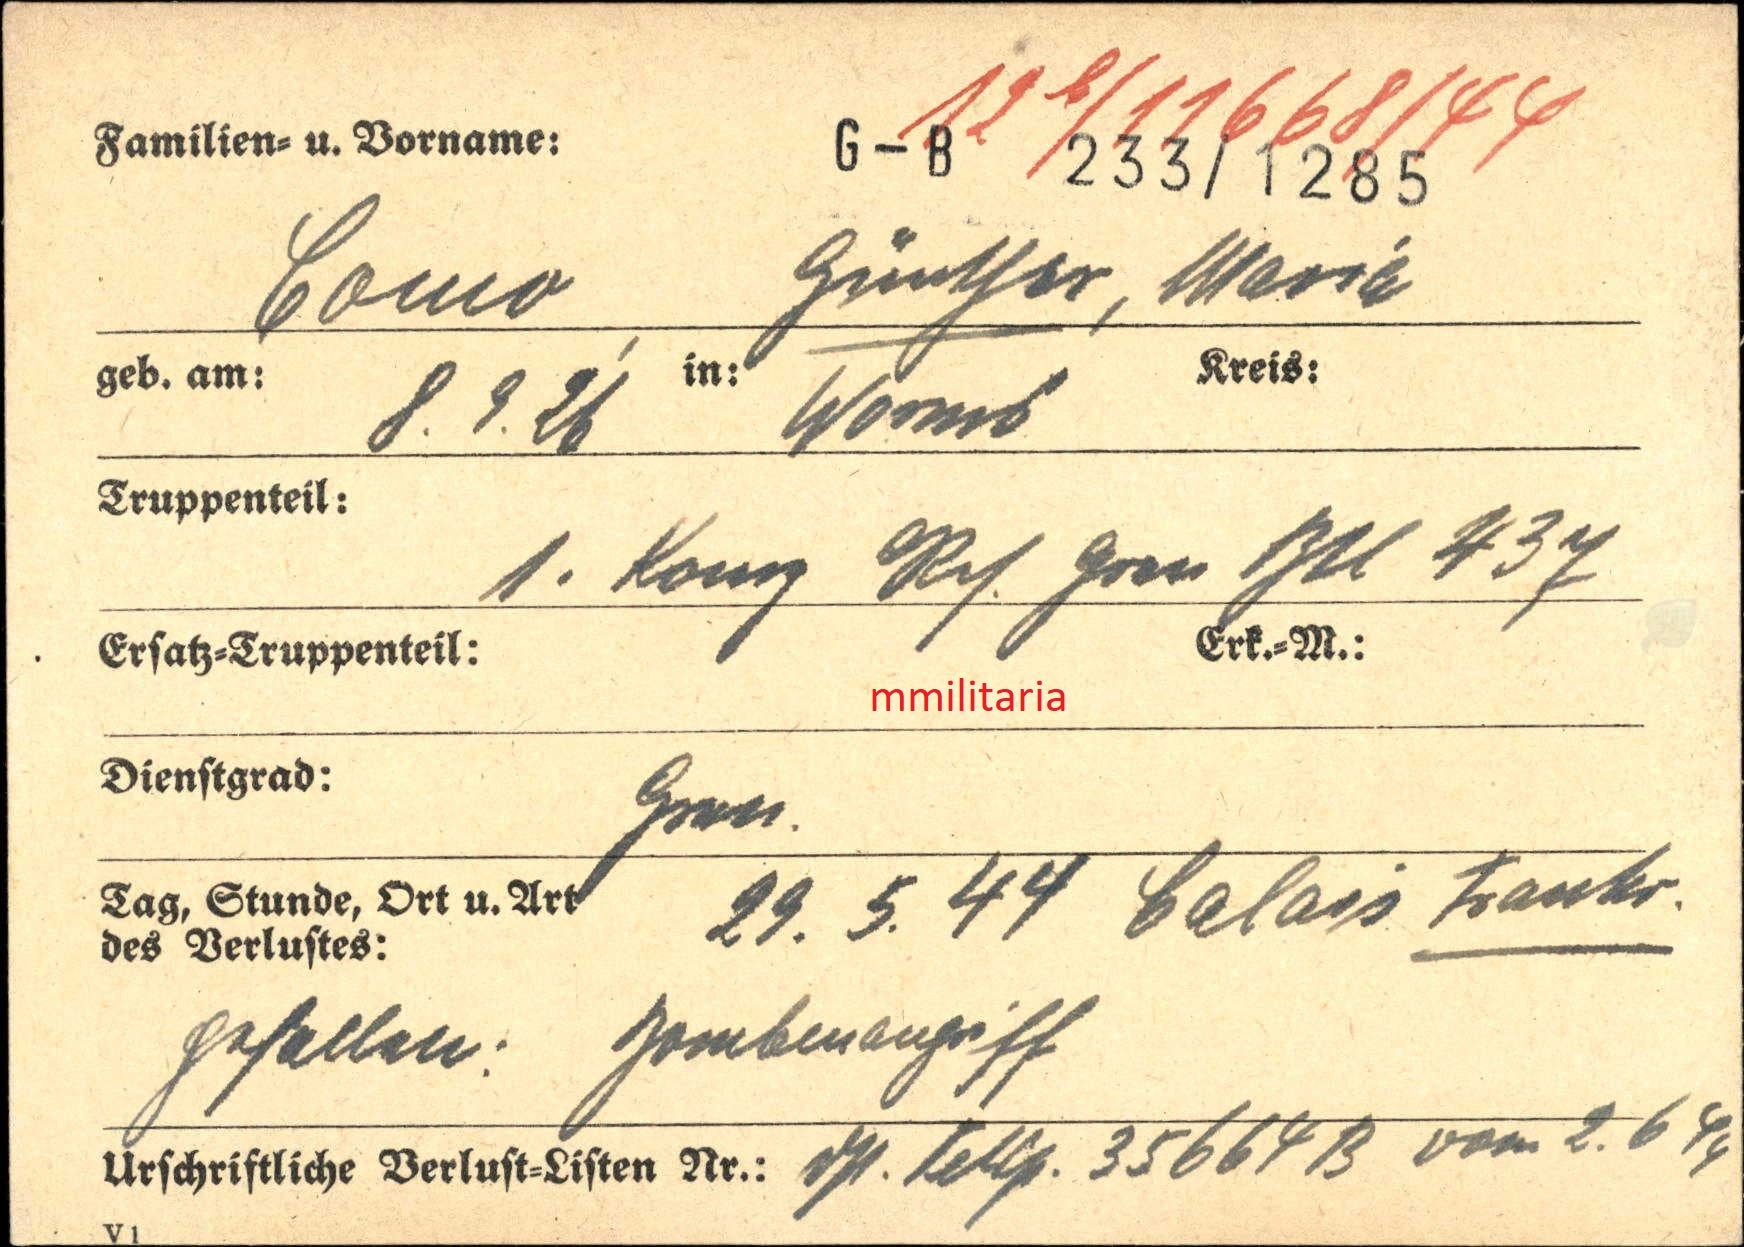 12 b/11668/44
Familien= u. Vorname: G-B 233/1285
Como Günther, Maria
geb. am: 8.9.26 in: Worms Kreis:
Truppenteil:
1. Komp Res. Gren Btl 437
Ersatz=Truppenteil: Erk.=M.:
mmilitaria
Dienstgrad: Gren.
Tag, Stunde, Ort u. Art 29.5.44 Calais Frankr.
des Verlustes:
gefallen: Bombenangriff
Urschriftliche Verlust=Listen Nr.: 35664 B vom 2.6 44
V 1